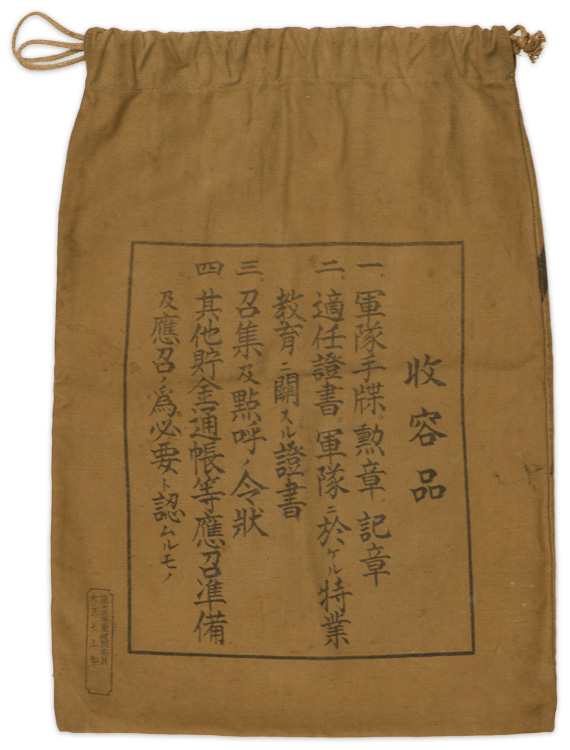 收容品
一、軍隊手牒、勲章、記章
二、適任證書、軍隊ニ於ケル特業
教育ニ關スル證書
三、召集及點呼ノ令狀
四、其他貯金通帳等應召準備
及應召ノ爲必要ト認ムルモノ